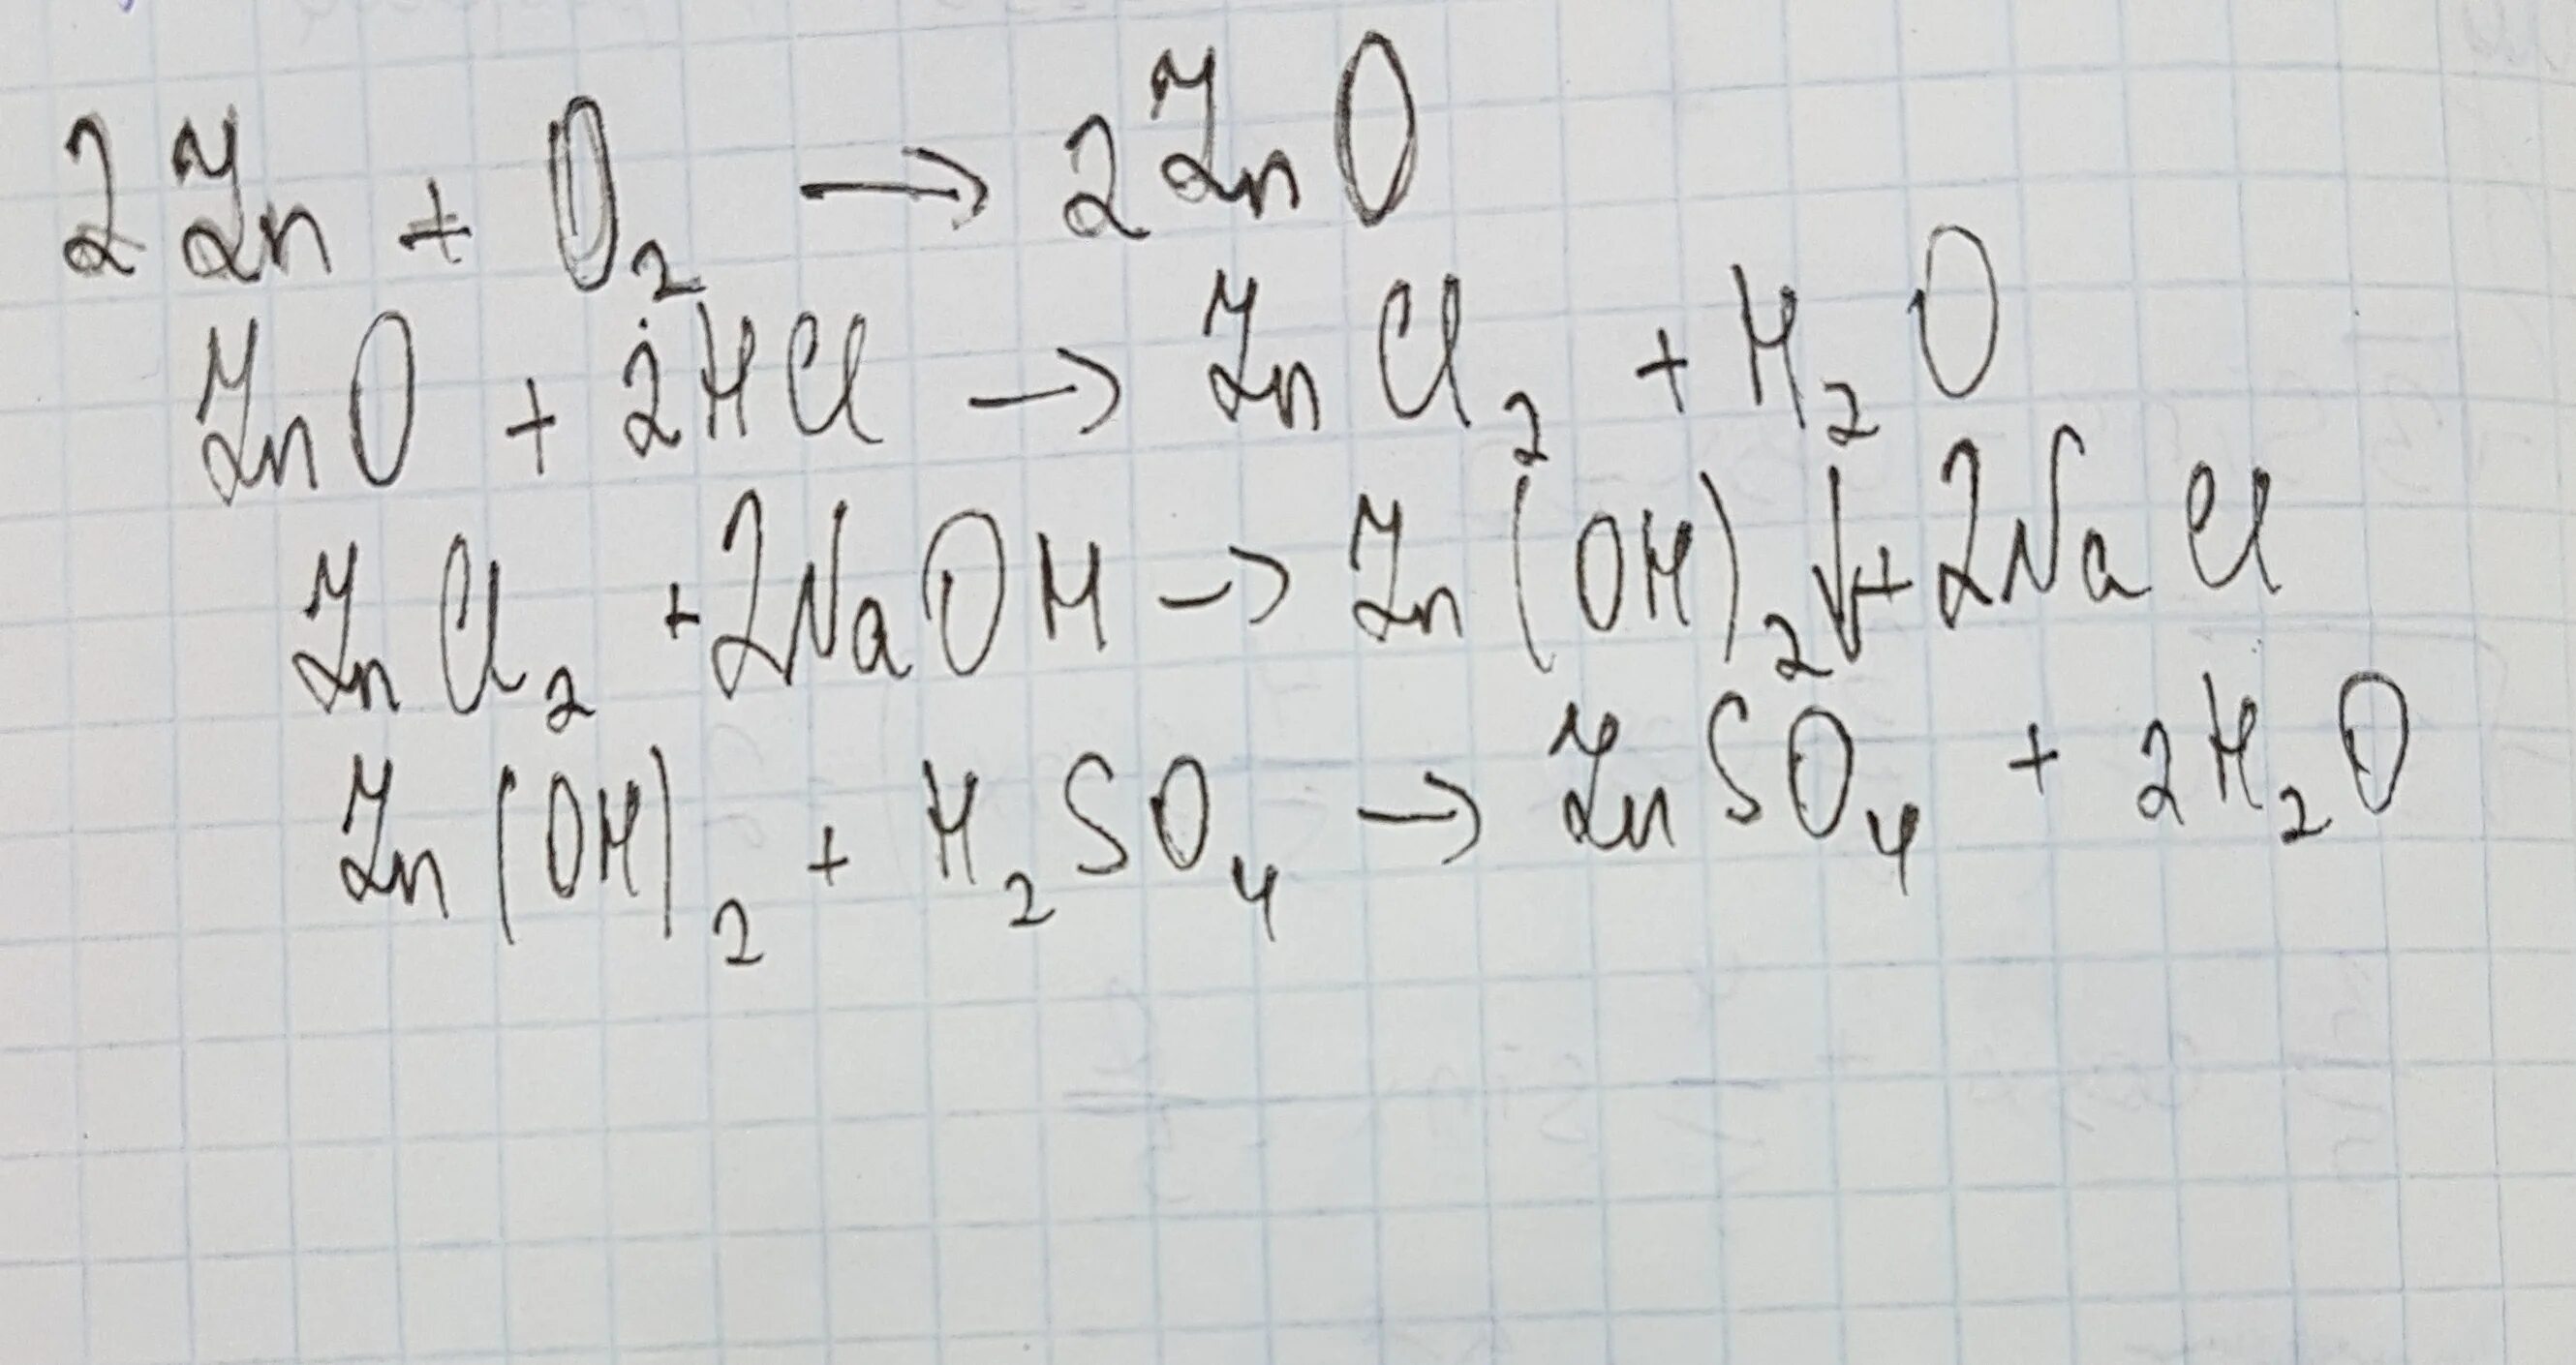 2Zn + O₂ → 2ZnO
ZnO + 2HCl → ZnCl₂ + H₂O
ZnCl₂ + 2NaOH → Zn(OH)₂↓ + 2NaCl
Zn(OH)₂ + H₂SO₄ → ZnSO₄ + 2H₂O